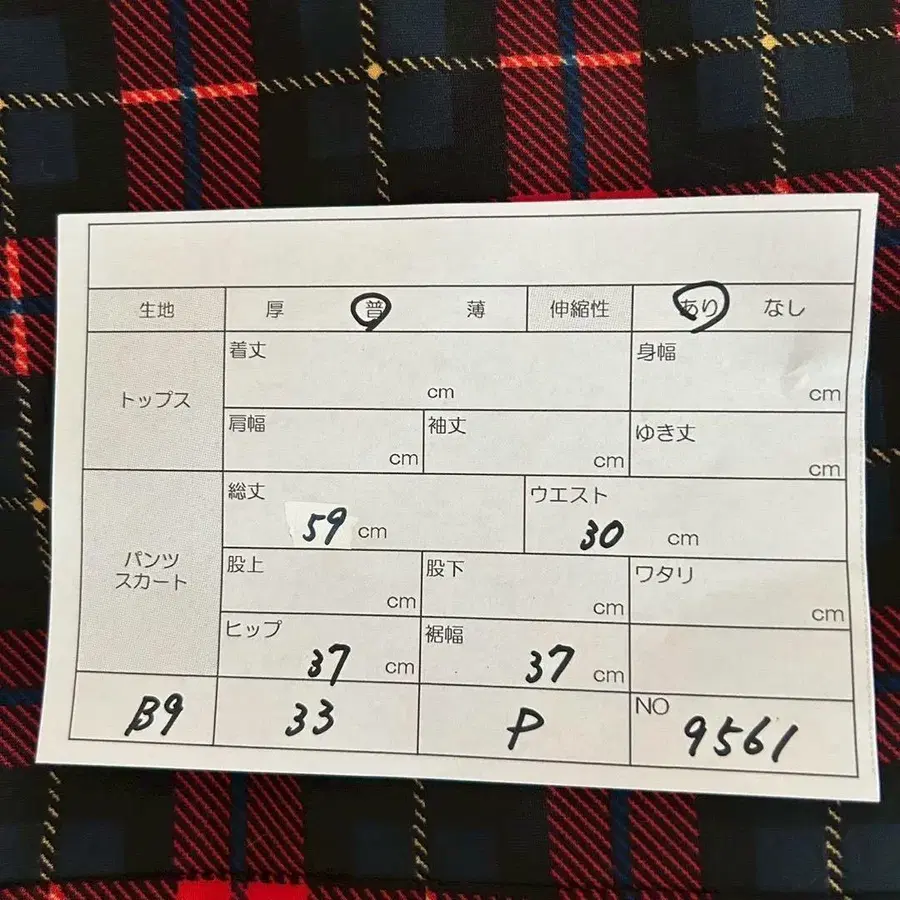 生地 厚 普 薄 伸縮性 あり なし
トップス
着丈 cm 身幅 cm
肩幅 cm 袖丈 cm ゆき丈 cm
パンツ
スカート
総丈 59 cm ウエスト 30 cm
股上 cm 股下 cm ワタリ cm
ヒップ 37 cm 裾幅 37 cm
B9 33 P NO 9561